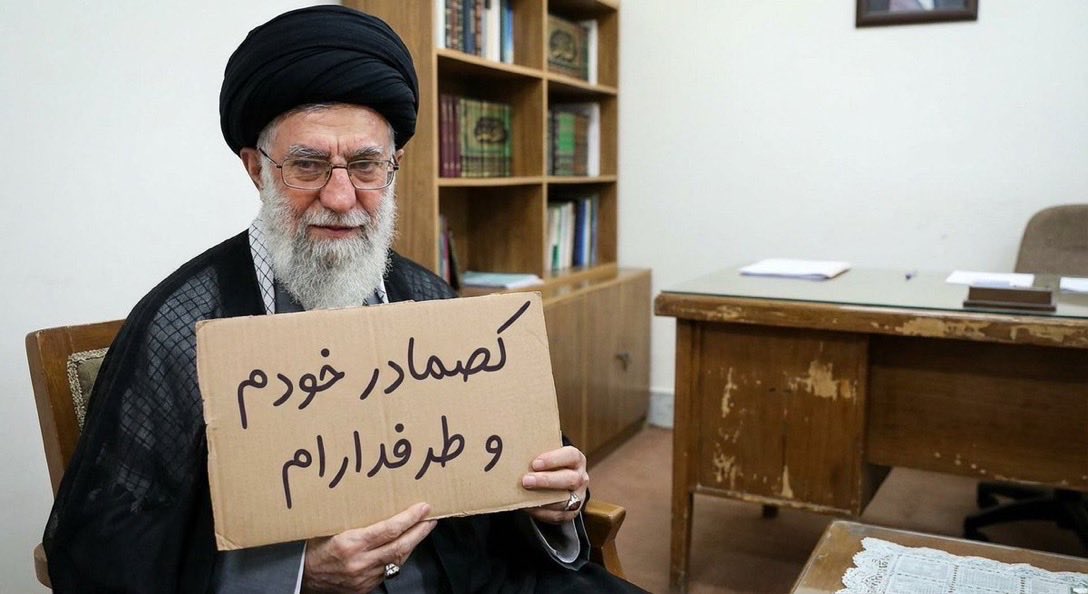 کصمادر خودم
و طرفدارام